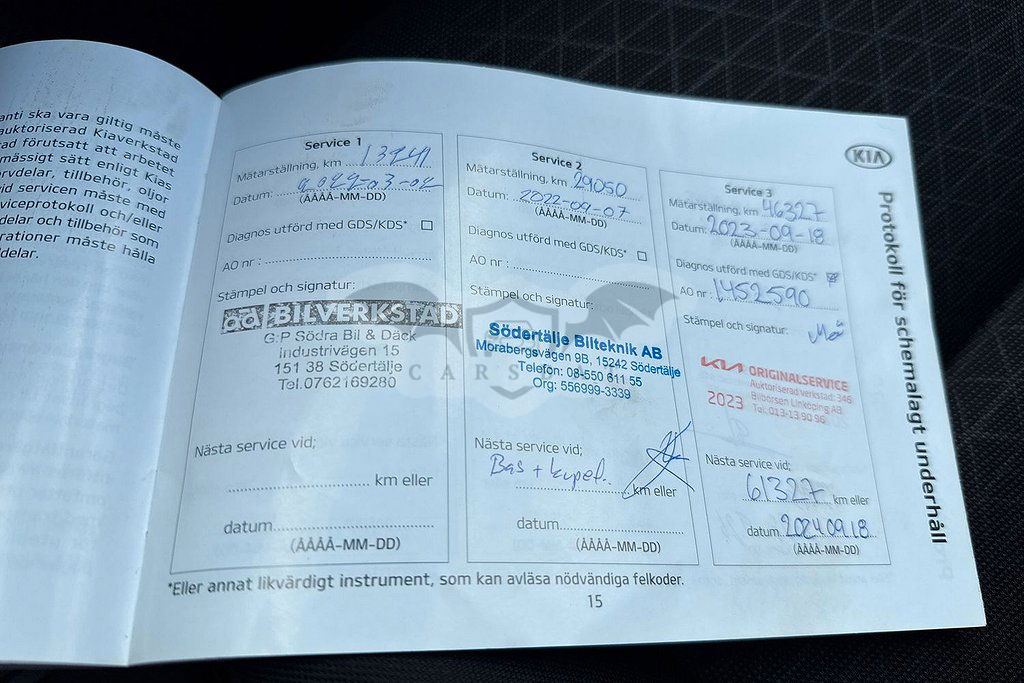 anti ska vara giltig måste
auktoriserad Kiaverkstad
ad förutsatt att arbetet
mässigt sätt enligt Kias
rvdelar, tillbehör, oljor
vid servicen måste med
viceprotokoll och/eller
delar och tillbehör som
rationer måste hålla
delar.
Service 1
Mätarställning, km 13941
Datum: 2022-03-02
(ÅÅÅÅ-MM-DD)
Diagnos utförd med GDS/KDS*
AO nr :
Stämpel och signatur:
BILVERKSTAD
G:P Södra Bil & Däck
Industrivägen 15
151 38 Södertälje
Tel.0762169280
Nästa service vid;
km eller
datum
(ÅÅÅÅ-MM-DD)
Service 2
Mätarställning, km 29050
Datum: 2022-09-07
(ÅÅÅÅ-MM-DD)
Diagnos utförd med GDS/KDS*
AO nr :
Stämpel och signatur:
Södertälje Bilteknik AB
Morabergsvägen 9B, 15242 Södertälje
Telefon: 08-550 611 55
Org: 556999-3339
Nästa service vid;
Bas + kupef.
km eller
datum
(ÅÅÅÅ-MM-DD)
Service 3
Mätarställning, km 46327
Datum: 2023-09-18
(ÅÅÅÅ-MM-DD)
Diagnos utförd med GDS/KDS*
AO nr : 1452590
Stämpel och signatur:
KIA ORIGINALSERVICE
Auktoriserad verkstad: 346
2023 Bilbörsen Linköping AB
Tel: 013-13 90 96
Nästa service vid;
61327 km eller
datum 2024 09 18
(ÅÅÅÅ-MM-DD)
KIA
Protokoll för schemalagt underhåll
*Eller annat likvärdigt instrument, som kan avläsa nödvändiga felkoder.
15